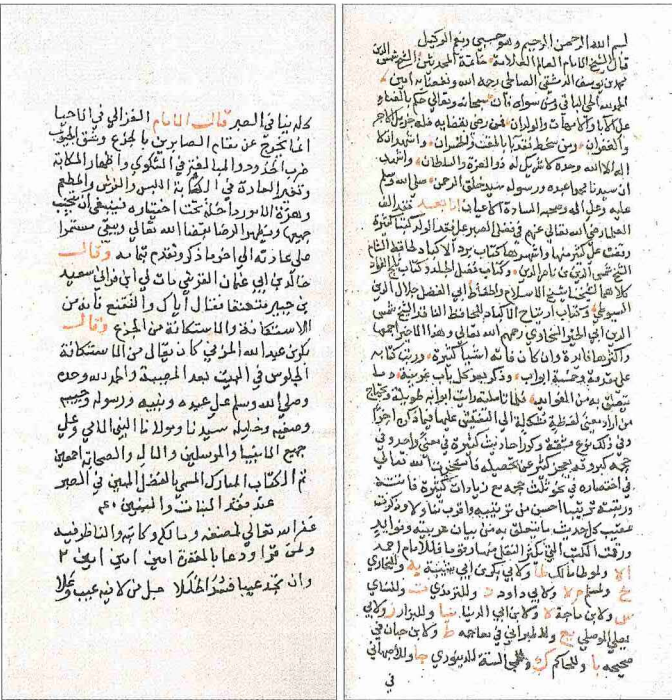 بسم الله الرحمن الرحيم وهو حسبي ونعم الوكيل
قال الشيخ الامام العالم العلامة خاتمة المحدثين الشيخ شمس الدين
محمد بن يوسف الدمشقي الصالحي رحمه الله ونفعنا به امين
الحمد لله الحي الباقي ومن سواه فان سبحانه وتعالى حكم بالفناء
على الآباء والامهات والولدان فمن رضي بقضايه فله جزيل الاجر
والغفران ومن سخط فقد باء بالمقت والخسران واشهد ان لا
اله الا الله وحده لا شريك له ذو العزة والسلطان واشهد
ان سيدنا محمدا عبده ورسوله سيد خلق الرحمن صلى الله وسلم
عليه وعلى اله وصحبه السادة الاعيان اما بعد فقد الف
العلما رضي الله تعالى عنهم في فضل الصبر على فقد الولد كتبا كثيرة
وقفت على كثير منها واشهرها كتاب برد الاكباد لحافظ الشام
الشيخ شمس الدين بن ناصر الدين وكتاب فضل الجلد
كلاهما لشيخنا شيخ الاسلام والحفاظ ابي الفضل جلال الدين
السيوطي وكتاب ارتياح الاكباد للحافظ الناقد الشيخ شمس
الدين ابي الخير السخاوي رحمهم الله تعالى وهذا الاخير اجمعها
واكثرها فائدة وان كان فاته اشيا كثيرة ورتب كتابه
على مقدمة وخمسة ابواب وذكر بعد كل باب غريبه وما
يتعلق به من الفوائد
من اراد معنى لفظة مشكلة الى التفتيش عليها
وفي ذلك نوع مشقة وكرر احاديث كثيرة في معنى واحد وفي
حجمه كبر وقد عجز كثير عن تحصيله فاستخرت الله تعالى
في اختصاره في نحو ثلث حجمه مع زيادات كثيرة
ورتبته ترتيبا احسن من ترتيبه واقرب تناولا وذكرت
عقب كل حديث ما يتعلق به من بيان غريبه وفوائد
ورقمت الكتب التي يكثر النقل منها رقوما فللامام احمد
ا ولموطا مالك طا ولابي بكر بن ابي شيبة يه وللبخاري
خ ولمسلم م ولابي داود د وللترمذي ت وللنسائي
س ولابن ماجة ه ولابن ابي الدنيا نيا وللبزار ز ولابي
يعلى الموصلي ع وللطبراني في معاجمه ط ولابن حبان في
صحيحه با وللحاكم ك للدينوري جا وللاصبهاني
في
كلا منها في الصبر قالـ الامام الغزالي في الاحيا
انما يخرج عن مقام الصابرين بالجزع وشق الجيوب
ضرب الخدود والمبالغة في الشكوى واظهار الكآبة
وتغير العادة في الملبس والفرش والمطعم
وهذه الامور داخلة تحت اختياره فينبغي ان يجتنب
جميعها ويظهر الرضا بقضا الله تعالى ويبقى مستمرا
على عادته الى اخر ما ذكر وتقدم تمامه وقالـ
خالد بن ابي عثمان القرشي مات لي ابن فرآني سعيد
بن جبير متقنعا فقال اياك والتقنع فانه من
الاستكانة والاستكانة من الجزع وقالـ
بكر بن عبد الله المزني كان يقال من الاستكانة
الجلوس في البيت بعد المصيبة والحمد لله وحده
وصلى الله وسلم على عبده ونبيه ورسوله وحبيبه
وصفيه وخليله سيدنا ومولانا النبي الامي وعلى
جميع الانبيا والمرسلين والال والصحابة اجمعين
تم الكتاب المبارك المسمى الفضل المبين في الصبر
عند فقد البنات والبنين
غفر الله تعالى لمصنفه ومالكه وكاتبه والناظر فيه
ولمن قرا ودعا بالمغفرة امين امين امين
وان تجد عيبا فسد الخللا جل من لا فيه عيب وعلا